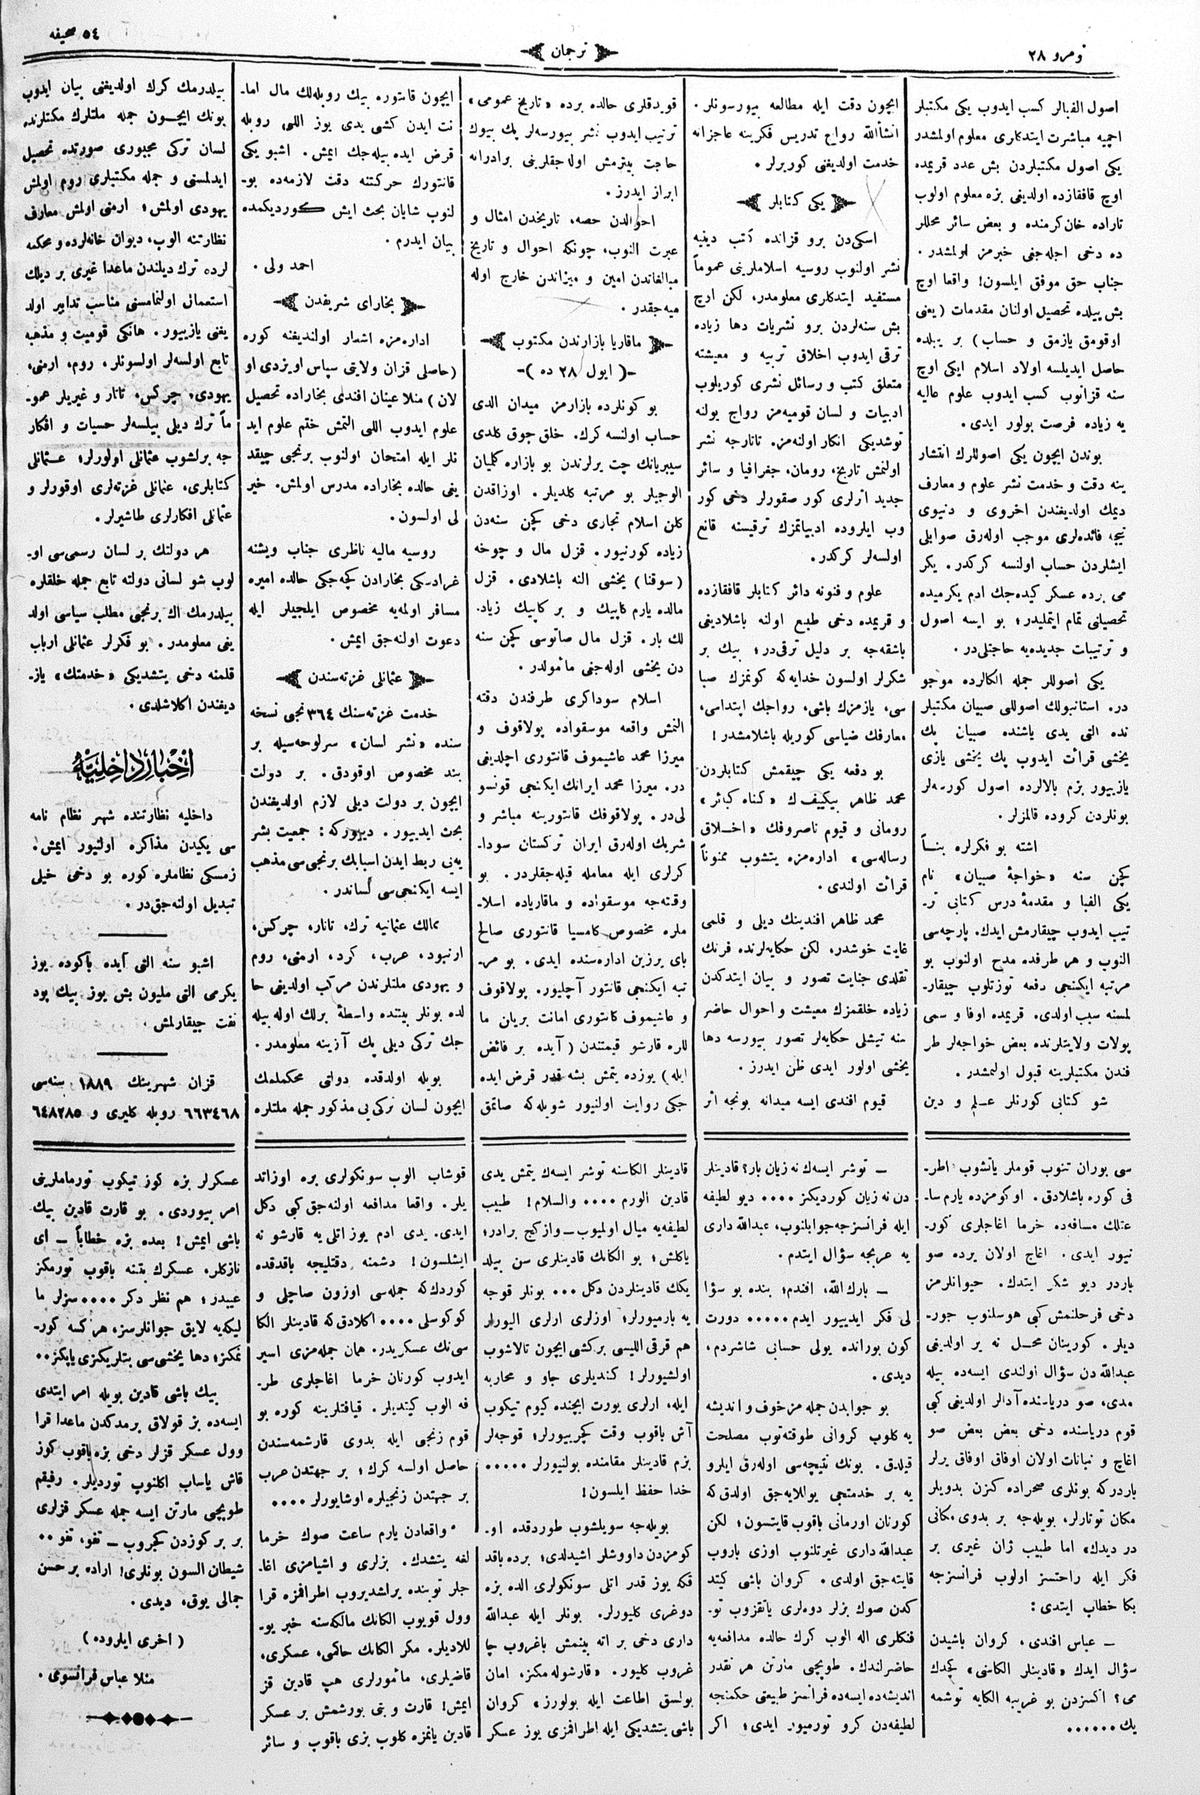 نومرو ٢٨
ترجمان
٥٤ صحيفه
اصول الفبالر كسب ايدوب يكى مكتبلر
اچيه مباشرت ايتدكلرى معلوم اولمشدر
يكى اصول مكتبلردن بش عدد قريمده
اوچ قافقازده اولديغى بزه معلوم اولوب
تاراده خان كرمنده و بعض سائر محللر
ده دخى اچله جغى خبرمز اولمشدر.
جناب حق موفق ايلسون! واقعا اوچ
بش ييلده تحصيل اولنان مقدمات (يعنى
اوقومق يازمق و حساب) بر ييلده
حاصل ايديلسه اولاد اسلام ايكى اوچ
سنه قزانوب كسب ايدوب علوم عاليه
يه زياده فرصت بولور ايدى.
بوندن ايچون يكى اصوللرك انتشار
ينه دقت و خدمت نشر علوم و معارف
ديمك اولديغندن اخروى و دنيوى
نتيجه فائده‌لرى موجب اوله‌رق صوابلى
ايشلردن حساب اولنسه كركدر. يكر
مى برده عسكر كيده‌جك ادم يكرميده
تحصيلنى تمام ايتمليدر؛ بو ايسه اصول
و ترتيبات جديده‌يه حاجتلى در.
يكى اصوللر جمله الكالرده موجو
در. استانبولك اصوللى صبيان مكتبلر
نده التى يدى ياشنده صبيان پك
يخشى قرائت ايدوب پك يخشى يازى
يازييور بزم بالالرده اصول كورسه‌لر
بونلردن كروده قالمزلر.
اشته بو فكرلره بنــاً
كچن سنه «خواجۀ صبيان» نام
يكى الفبا و مقدمۀ درس كتابى تر-
تيب ايدوب چيقارمش ايدك. پارچه‌سى
النوب و هر طرفده مدح اولنوب بو
مرتبه ايكنجى دفعه توزتلوب چيقار-
لمسنه سبب اولدى. قريمده اوفا و سمى
پولات ولايتلرنده بعض خواجه‌لر طر
فندن مكتبلرينه قبول اولنمشدر.
شو كتابى كورنلر عــلم و دين
ايچون دقت ايله مطالعه بيورسونلر.
انشأالله رواج تدريس فكرينه عاجزانه
خدمت اولديغنى كوررلر.
يكى كتابلر
اسكى‌دن برو قزانده كتب دينيه
نشر اولنوب روسيه اسلاملرينى عموماً
مستفيد ايتدكلرى معلومدر، لكن اوچ
بش سنه‌لردن برو نشريات دها زياده
ترقى ايدوب اخلاق تربيه و معيشته
متعلق كتب و رسائل نشرى كوريلوب
ادبيات و لسان قوميه‌مز رواج يولنه
توشديكى انكار اولنه‌مز. تاتارجه نشر
اولنمش تاريخ، رومان، جغرافيا و سائر
جديد اثرلرى كور صقورلر دخى كور
وب ايلروده ادبياتمزك ترقيسنه قانع
اولسه‌لر كركدر.
علوم و فنونه دائر كتابلر قافقازده
و قريمده دخى طبع اولنه باشلاديغى
باشقه‌جه بر دليل ترقى در؛ بيك بر
شكرلر اولسون خدايه كه كونمزك صبا
سى، يازمزك باشى، رواجك ابتداسى،
معارفك ضياسى كوريله باشلامشدر!
بو دفعه يكى چيقمش كتابلردن
محمد ظاهر بيكيف ك «كناه كبائر»
رومانى و قيوم ناصروفك «اخــلاق
رساله‌سى» اداره‌مزه يتشوب ممنوناً
قرائت اولندى.
محمد ظاهر افندينك ديلى و قلمى
غايت خوشدر، لكن حكايه‌لرنده فرنك
تقلدى جنايت تصور و بيان ايتدكدن
زياده خلقمزك معيشت و احوال حاضر
سنه تيشلى حكايه‌لر تصور بيورسه دها
يخشى اولور ايدى ظن ايدرز.
قيوم افندى ايسه ميدانه بونجه اثر
قويدقلرى حالده برده «تاريخ عمومى»
ترتيب ايدوب نشر بيورسه‌لر پك بيوك
حاجت بيترمش اوله جقلرينى برادرانه
ابراز ايدرز.
احوالدن حصه، تاريخدن امثال و
عبرت النوب، چونكه احوال و تاريخ
مبالغاندن امين و ميزاندن خارج اوله
ميه‌جقدر.
ماقاريا بازارندن مكتوب
-( ايول ٢٨ ده )-
بو كونلرده بازارمز ميدان الدى
حساب اولنسه كرك. خلق چوق كلدى
سيبريانك چت يرلرندن بو بازاره كلميان
الوجيلر بو مرتبه كلديلر. اوزاقدن
كلن اسلام تجارى دخى كچن سنه‌دن
زياده كورنيور. قزل مال و چوخه
(سوقنا) يخشى النه باشلادى. قزل
مالده يارم كاپيك و بر كاپيك زياد.
لك بار. قزل مال صاتوسى كچن سنه
دن يخشى اوله‌جغى مأمولدر.
اسلام سوداكرى طرفندن دقته
النمش واقعه موسقواده پولاقوف و
ميرزا محمد عاشيموف قانتورى اچلديغى
در. ميرزا محمد ايرانك ايكنجى قونسو
لى در. پولاقوفك قانتورينه مباشر و
شريك اوله‌رق ايران تركستان سودا-
كرلرى ايله معامله قيله‌جقلردر. بو
وقته‌جه موسقواده و ماقارياده اسلا-
ملره مخصوص كامسيا قانتورى صالح
باى يرزين اداره‌سنده ايدى. بو مر-
تبه ايكنجى قانتور آچليور. پولاقوف
و عاشيموف كانتورى امانت بريان ما
للره قارشو قيمتندن (آيده بر فائض
ايله) يوزده يتمش بشه‌قدر قرض ايده
جكى روايت اولنيور شويله كه صاتمق
ايچون قانتوره بيك روبله‌لك مال اما-
نت ايدن كشى يدى يوز اللى روبله
قرض ايده بيله‌جك ايمش. اشبو يكى
قانتورك حركتنه دقت لازمه‌ده بو-
لنوب شايان بحث ايش كورديكمده
بيان ايدرم.
احمد ولى.
بخاراى شريفدن
اداره‌مزه اشعار اولنديغنه كوره
(حاصلى قزان ولايتى سپاس اويزدى او
لان) منلا عينان افندى بخاراده تحصيل
علوم ايدوب اللى التمش ختم علوم ايد
نلر ايله امتحان اولنوب برنجى چيقد
يغى حالده بخاراده مدرس اولمش. خير
لى اولسون.
روسيه ماليه ناظرى جناب ويشنه
غرادسكى بخارادن كچه‌جكى حالده اميره
مسافر اولمه‌يه مخصوص ايلچيلر ايله
دعوت اولنه‌جق ايمش.
عثمانلى غزته‌سندن
خدمت غزته‌سنك ٣٦٤نجى نسخه
سنده «نشر لسان» سرلوحه‌سيله بر
بند مخصوص اوقودق. بر دولت
ايچون بر دولت ديلى لازم اولديغندن
بحث ايدييور. دييور كه: جمعيت بشر
يه‌يى ربط ايدن اسبابك برنجى‌سى مذهب
ايسه ايكنجى‌سى لساندر.
ممالك عثمانيه ترك، تاتار، چركس،
ارنبود، عرب، كرد، ارمنى، روم
و يهودى ملتلرندن مركب اولديغى حا
لده بونلر بيننده واسطۀ برلك اوله بيله
جك تركى ديلى پك آزينه معلومدر.
بويله اولدقده دولتى محكملمك
ايچون لسان تركى‌يى مذكور جمله ملتلره
بيلدرمك كرك اولديغنى بيان ايدوب
بونك ايچــون جمله ملتلرك مكتلرنده
لسان تركى مجبورى صورتده تحصيل
ايدلمسنى و جمله مكتبلرى روم اولمش
يهودى اولمش؛ ارمنى اولمش معارف
نظارتنه الوب، ديوان خانه‌لرده و محكمه
لرده ترك ديلندن ماعدا غيرى بر ديلك
استعمال اولنمامسنى مناسب تدابير اولد
يغنى يازييور. هانكى قوميت و مذهبه
تابع اولسه‌لر اولسونلر. روم، ارمنى،
يهودى، چركس، تاتار و غيريلر عمو-
ماً ترك ديلى بيلسه‌لر حسيات و افكار
جه برلشوب عثمانلى اولورلر؛ عــثمانلى
كتابلرى، عثمانلى غزته‌لرى اوقورلر و
عثمانلى افكارلرى طاشيرلر.
هر دولتك بر لسان رسمى‌سى او-
لوب شو لسانى دولته تابع جمله خلقلره
بيلدرمك اك برنجى مطلب سياسى اولد
يغى معلومدر. بو فكرلر عثمانلى ارباب
قلمنه دخى يتشديكى «خدمتك» ياز-
ديغندن اكلاشلدى.
اخبار داخليه
داخليه نظارتنده شهر نظام نامه
سى يكيدن مذاكره اولنيور ايمش؛
زمسكى نظاملره كوره بو دخى خيلى
تبديل اوله‌جق در.
اشبو سنه التى آيده باكوده يوز
يكرمى التى مليون بش يوز بيك پود
نفت چيقارلمش.
قزان شهرينك ١٨٨٩ سنه‌سى
٦٦٣٤٦٨ روبله كليرى و ٦٤٨٢٨٥
سى بوران تنوب قوملر ياتشوب اطر-
فى كوره باشلادق. اوكومزده يارم سا-
عتلك مسافه‌ده خرما اغاجلرى كور-
نيور ايدى. اغاج اولان يرده صو
باردر ديو شكر ايتدك. حيوانلرمز
دخى فرحلنمش كبى هوسلنوب جور-
ديلر. كورينان محــل نه ير اولديغى
عبدالله دن سؤال اولندى ايسه‌ده بيله
مدى، صو درياسنده آدالر اولديغى كبى
قوم درياسنده دخى بعض بعض صو
اغاج و نباتات اولان اوفاق اوفاق يرلر
باردركه بونلرى صحراده كزن بدويلر
مكان توتارلر، بويله‌جه بر بدوى مكانى
در ديدك، اما طبيب ژان غيرى بر
فكر ايله راحتسز اولوب فرانسزجه
بكا خطاب ايتدى:
— عباس افندى، كروان باشيدن
سؤال ايدك «قادينلر الكاسى» كچدك
مى؟ اكسزدن بو غريبه الكايه توشمه
يك......
— توشر ايسه‌ك نه زيان بار؟ قادينلر
دن نه زيان كورديكز.... ديو لطيفه
ايله فرانسزجه جوابلنوب، عبدالله دارى
يه عربجه سؤال ايتدم.
— بارك الله، افندم؛ بنده بو سؤا
لى فكر ايدييور ايدم..... دورت
كون بورانده يولى حسابى شاشردم،
ديدى.
بو جوابدن جمله مز خوف و انديشه
يه كلوب كروانى طوقته‌توب مصلحت
قيلدق. بونك نتيجه‌سى اوله‌رق ايلرو
يه بر خدمتجى يوللايه‌جق اولدق كه
كورنان اورمانى باقوب قايتسون؛ لكن
عبدالله دارى غيرتلنوب اوزى باروب
قايته‌جق اولدى. كروان باشى كيتد
كدن صوك بزلر دوه‌لرى ياتقزوب تو-
فنكلرى اله الوب كرك حالده مدافعه‌يه
حاضرلندك. طوپچى مارتن هر نقدر
انديشه‌ده ايسه‌ده فرانسز طبيعتى حكمنجه
لطيفه‌دن كرو تورميور ايدى؛ اكر
قادينلر الكاسنه توشر ايسه‌ك يتمش يدى
قادين الورم .... والسلام! طبيب
لطيفه‌يه ميال اولميوب — وازكچ برادر؛
ياكلش؛ بو الكانك قادينلرى سن بيلد
يكك قادينلردن دكل... بونلر قوجه
يه بارميورلر؛ اوزلرى ارلرى اليورلر
هم قرقى الليسى بر كشى ايچون تالاشوب
اولشيورلر! كنديلرى جاو و محاربه
ايله، ارلرى يورت ايچنده كيوم تيكوب
آش باقوب وقت كچرييورلر؛ قوجه‌لر
بزم قادينلر مقامنده بولنيورلر.....
خدا حفظ ايلسون!
بويله‌جه سويلشوب طوردقده او-
كومزدن داووشلر اشيدلدى؛ برده باقد
قكه يوز قدر اتلى سونكولرى الده بزه
دوغرى كليورلر. بونلر ايله عبدالله
دارى دخى بر اته بينمش باغروب چا
غروب كليور. «قارشولمكز، امان
بولسق اطاعت ايله بولورز» كروان
باشى يتشديكى ايله اطرافمزى يوز عسكر
قوشاب الوب سونكولرى بره اوزاتد
يلر. واقعا مدافعه اولنه‌جق كى دكل
ايدى. يدى ادم يوز اتلى يه قارشو نه
ايشلسون! دشمنه دقتليجه باقدقده
كوردك كه جمله‌سى اوزون صاچلى و
كوكوسلى.... اكلادق كه قادينلر الكا
سى‌نك عسكريدر. همان جمله‌مزى اسير
ايدوب كورنان خرما اغاجلرى طر-
فه الوب كيتديلر. قيافتلرينه كوره بو
قوم زنجى ايله بدوى قارشمه‌سندن
حاصل اولسه كرك؛ بر جهتدن عرب
بر جهتدن زنجيلره اوشايورلر....
واقعادن يارم ساعت صوك خرما
لغه يتشدك. بزلرى و اشيامزى اغا-
جلر توبنده يراشديروب اطرافمزه قرا
وول قويوب الكانك مالكه‌سنه خبر يو-
للاديلر. مكر الكانك حاكمى، عسكرى،
قاضيلرى، مأمورلرى هپ قادين قز
ايمش! قارت و بتى بورشمش بر عسكر
قادين يانمزه كلوب بزى باقوب و سائر
عسكرلر بزه كوز تيكوب تورماملرينى
امر بيوردى. بو قارت قادين بيك
باشى ايمش! بعده بزه خطاباً — اى
نازكلر، عسكرك بقتنه باقوب تورمكز
عيبدر؛ هم نظر دكر.... سزلر ما
ليكه‌يه لايق جوانلرسز، هر كسه كور-
نمكز؛ دها يخشى‌سى بتلريكزى يابكز..
بيك باشى قادين بويله امر ايتدى
ايسه‌ده بز قولاق برمدكدن ماعدا قرا
وول عسكر قزلر دخى بزه باقوب كوز
قاش ياساب اكلنوب تورديلر. رفيقم
طوپچى مارتن ايسه جمله عسكر قزلرى
بر بر كوزدن كچروب — تفو، تفو..
شيطان السون بونلرى! اراده بر حسن
جمالى يوق، ديدى.
( اخرى ايلروده )
منلا عباس فرانسوى.